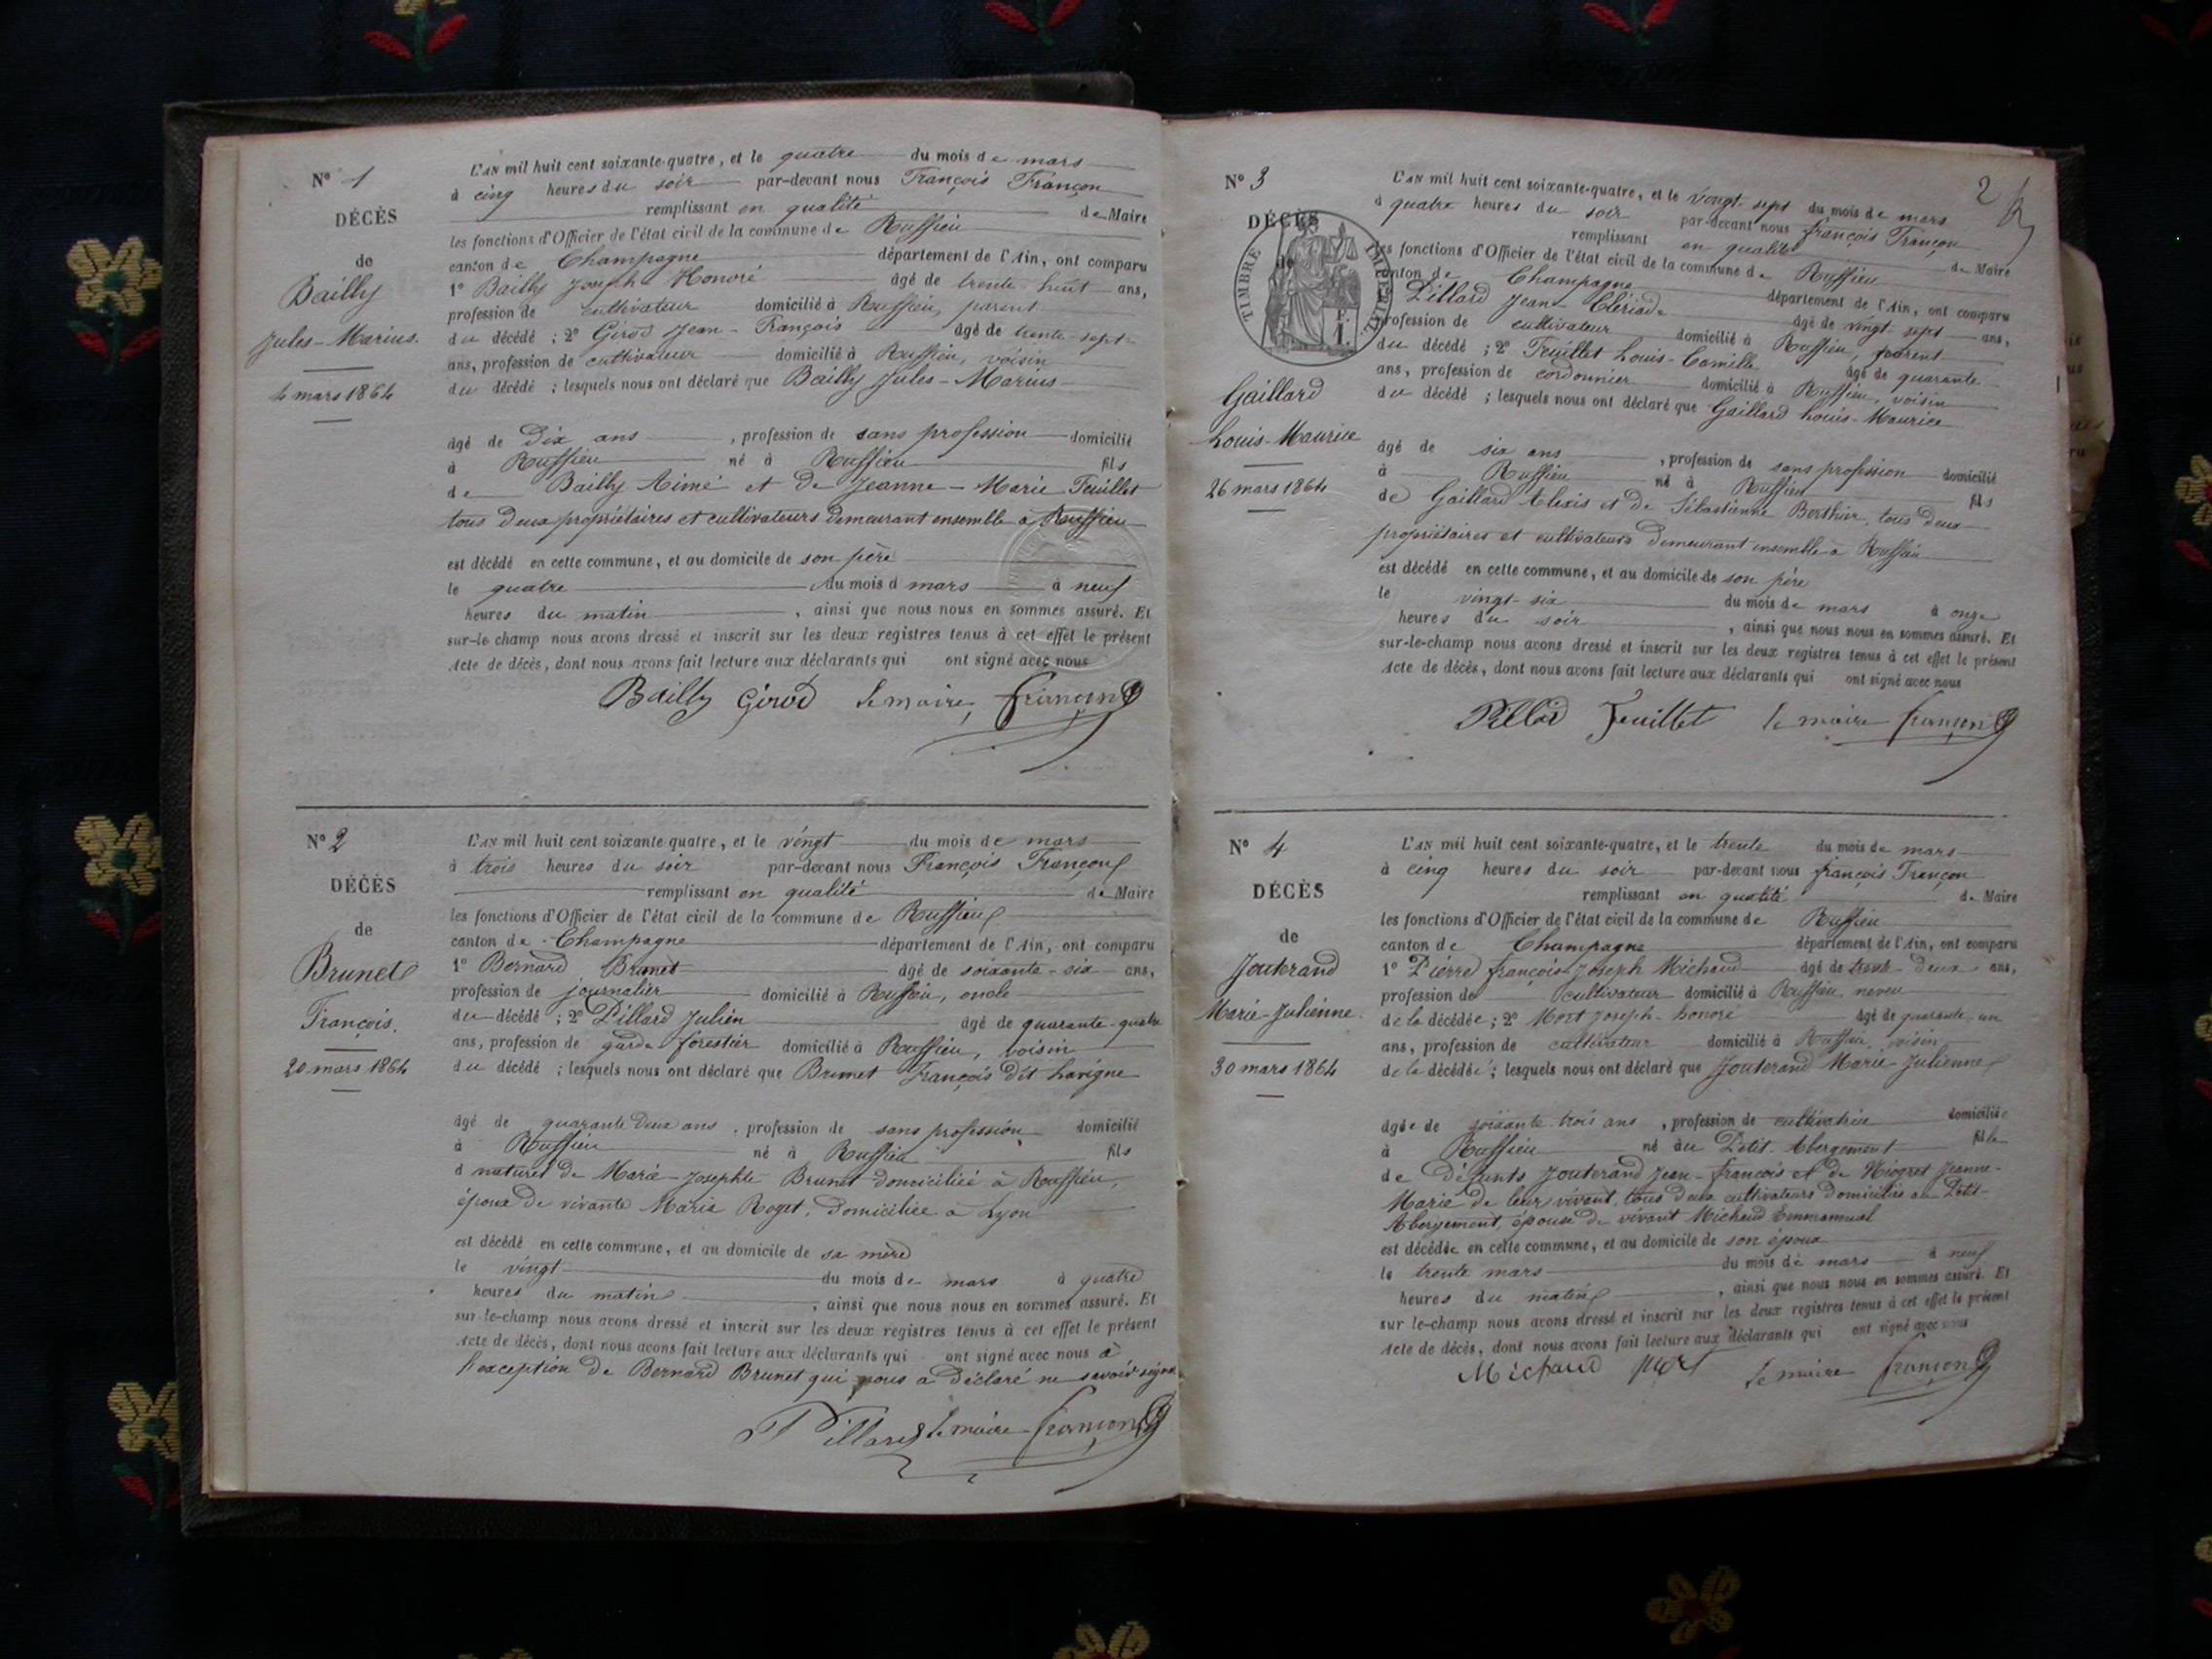 N° 1
DÉCÈS
de
Bailly
Jules-Marius.
4 mars 1864
L'AN mil huit cent soixante-quatre, et le quatre du mois de mars
à cinq heures du soir par-devant nous François Françon
remplissant en qualité de Maire
les fonctions d'Officier de l'état civil de la commune de Ruffieu
canton de Champagne département de l'Ain, ont comparu
1° Bailly Joseph Honoré âgé de trente-huit ans,
profession de cultivateur domicilié à Ruffieu, parent
du décédé ; 2° Girod Jean-François âgé de trente-sept
ans, profession de cultivateur domicilié à Ruffieu, voisin
du décédé ; lesquels nous ont déclaré que Bailly Jules-Marius
âgé de Dix ans , profession de sans profession domicilié
à Ruffieu né à Ruffieu fils
de Bailly Aimé et de Jeanne-Marie Feuillet
tous deux propriétaires et cultivateurs demeurant ensemble à Ruffieu
est décédé en cette commune, et au domicile de son père
le quatre du mois d mars à neuf
heures du matin , ainsi que nous nous en sommes assuré. Et
sur-le champ nous avons dressé et inscrit sur les deux registres tenus à cet effet le présent
Acte de décès, dont nous avons fait lecture aux déclarants qui ont signé avec nous
Bailly Girod le maire, françon
N° 2
DÉCÈS
de
Brunet
François.
20 mars 1864
L'AN mil huit cent soixante quatre, et le vingt du mois de mars
à trois heures du soir par-devant nous François Françon
remplissant en qualité de Maire
les fonctions d'Officier de l'état civil de la commune de Ruffieu
canton de Champagne département de l'Ain, ont comparu
1° Bernard Brunet âgé de soixante-six ans,
profession de journalier domicilié à Ruffieu, oncle
du décédé ; 2° Pillard Julien âgé de quarante-quatre
ans, profession de garde forestier domicilié à Ruffieu, voisin
du décédé ; lesquels nous ont déclaré que Brunet François dit Lavigne
âgé de quarante deux ans , profession de sans profession domicilié
à Ruffieu né à Ruffieu fils
d naturel de Marie-Josephte Brunet domiciliée à Ruffieu,
époux de vivante Marie Roget, domiciliée à Lyon
est décédé en cette commune, et au domicile de sa mère
le vingt du mois de mars à quatre
heures du matin , ainsi que nous nous en sommes assuré. Et
sur-le-champ nous avons dressé et inscrit sur les deux registres tenus à cet effet le présent
Acte de décès, dont nous avons fait lecture aux déclarants qui ont signé avec nous à
l'exception de Bernard Brunet qui nous a déclaré ne savoir signer
Pillard le maire françon
2
N° 3
DÉCÈS
de
TIMBRE IMPÉRIAL
Gaillard
Louis-Maurice
26 mars 1864
L'AN mil huit cent soixante-quatre, et le vingt-sept du mois de mars
à quatre heures du soir par-devant nous françois Françon
remplissant en qualité de Maire
les fonctions d'Officier de l'état civil de la commune de Ruffieu
canton de Champagne département de l'Ain, ont comparu
Pillard Jean Clériade âgé de vingt-sept ans,
profession de cultivateur domicilié à Ruffieu, parent
du décédé ; 2° Feuillet Louis-Camille âgé de quarante
ans, profession de cordonnier domicilié à Ruffieu, voisin
du décédé ; lesquels nous ont déclaré que Gaillard Louis-Maurice
âgé de six ans , profession de sans profession domicilié
à Ruffieu né à Ruffieu fils
de Gaillard Alexis et de Sébastienne Berthier, tous deux
propriétaires et cultivateurs demeurant ensemble à Ruffieu
est décédé en cette commune, et au domicile de son père
le vingt-six du mois de mars à onze
heures du soir , ainsi que nous nous en sommes assuré. Et
sur-le-champ nous avons dressé et inscrit sur les deux registres tenus à cet effet le présent
Acte de décès, dont nous avons fait lecture aux déclarants qui ont signé avec nous
Pillard Feuillet le maire françon
N° 4
DÉCÈS
de
Jouterand
Marie-Julienne.
30 mars 1864
L'AN mil huit cent soixante-quatre, et le trente du mois de mars
à cinq heures du soir par-devant nous françois Françon
remplissant en qualité de Maire
les fonctions d'Officier de l'état civil de la commune de Ruffieu
canton de Champagne département de l'Ain, ont comparu
1° Pierre françois Joseph Michaud âgé de trente-deux ans,
profession de cultivateur domicilié à Ruffieu, neveu
de la décédée ; 2° Mort Joseph-honoré âgé de quarante-un
ans, profession de cultivateur domicilié à Ruffieu, voisin
de la décédée ; lesquels nous ont déclaré que Jouterand Marie-Julienne
âgée de soixante-trois ans , profession de cultivatrice domiciliée
à Ruffieu né au Petit-Abergement fille
de défunts Jouterand Jean-françois et de Niogret Jeanne-
Marie de leur vivant, tous deux cultivateurs domiciliés au Petit-
Abergement, épouse de vivant Michaud Emmanuel
est décédée en cette commune, et au domicile de son époux
le trente mars du mois de mars à neuf
heures du matin , ainsi que nous nous en sommes assuré. Et
sur le-champ nous avons dressé et inscrit sur les deux registres tenus à cet effet le présent
Acte de décès, dont nous avons fait lecture aux déclarants qui ont signé avec nous
Michaud Mort le maire françon